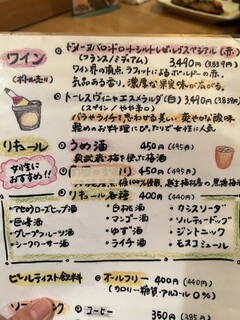 ワイン
(ボトル売り)
◎ドメーヌバロンドロートシルトレゼルブスペシアル(赤)
(フランス/ミディアム) 3,490円(3,839円)
ワイン界の頂点、ラフィットによるボルドーの赤。
気品ある香り、濃厚な果実味が広がる。
◎トーレスヴィニャエスメラルダ(白) 3,490円(3,839円)
(スペイン/やや辛口)
バラやライチを思わせる美しい爽やかな酸味
軽めのお料理にぴったりで女性に人気
リキュール
女性におすすめ!!
◎うめ酒 450円(495円)
り 450円(495円)
◎リキュール各種 400円(440円)
・アセロラローズヒップ酒 ・白桃酒 ・カシスソーダ
・巨峰酒 ・マンゴー酒 ・ソルティードッグ
・グレープフルーツ酒 ・ゆず酒 ・ジントニック
・シークワーサー酒 ・ライチ酒 ・モスコミュール
ビールテイスト飲料
◎オールフリー 400円(440円)
(カロリー・糖質・アルコール0%)
ソ
◎コーヒー 350円